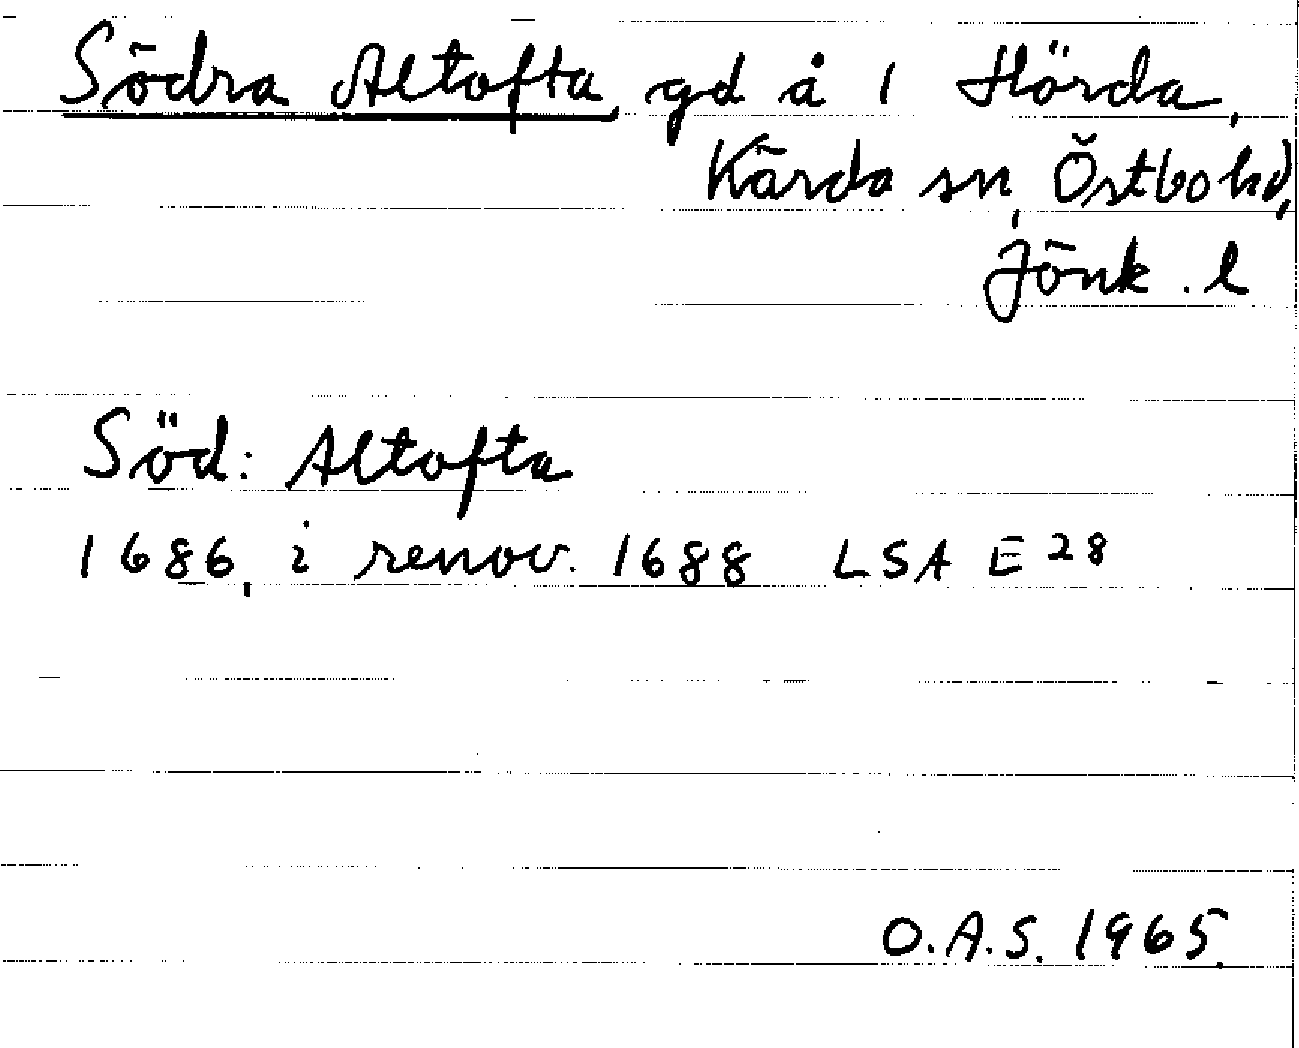 Södra Altofta, gd å 1 Hörda,
Kärda sn, Östbo hd,
Jönk. l
Söd: Altofta
1686, i renov. 1688 LSA E 28
O.A.S. 1965.